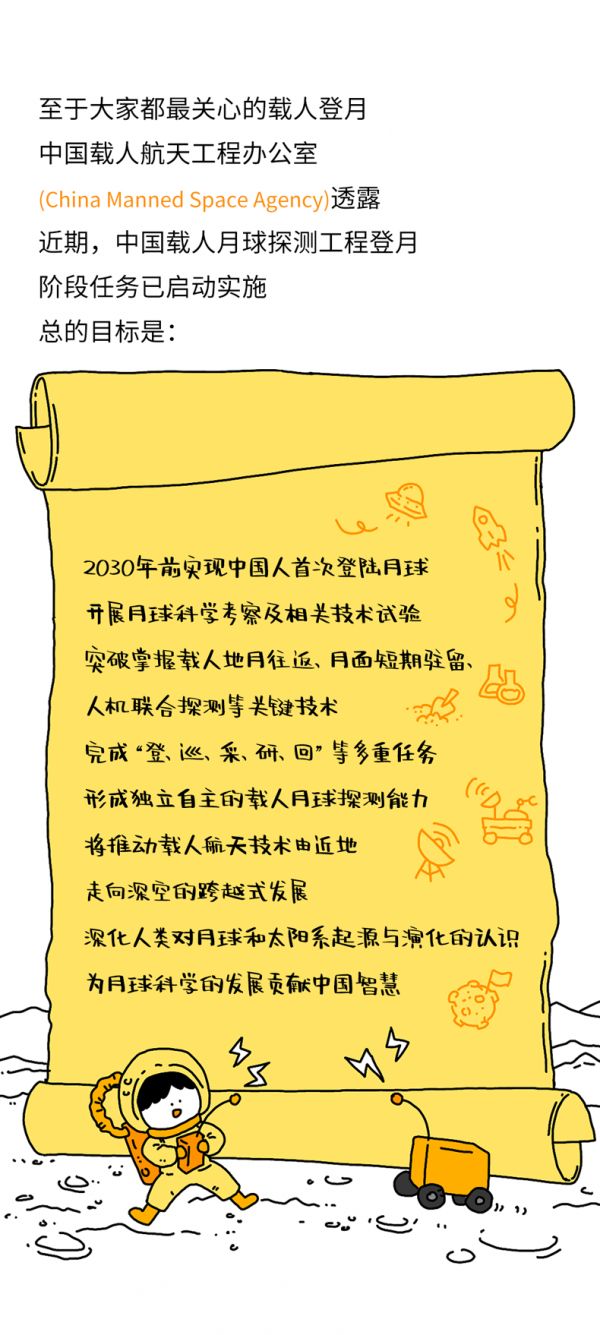 至于大家都最关心的载人登月
中国载人航天工程办公室
(China Manned Space Agency)透露
近期，中国载人月球探测工程登月
阶段任务已启动实施
总的目标是：
2030年前实现中国人首次登陆月球
开展月球科学考察及相关技术试验
突破掌握载人地月往返、月面短期驻留、
人机联合探测等关键技术
完成“登、巡、采、研、回”等多重任务
形成独立自主的载人月球探测能力
将推动载人航天技术由近地
走向深空的跨越式发展
深化人类对月球和太阳系起源与演化的认识
为月球科学的发展贡献中国智慧